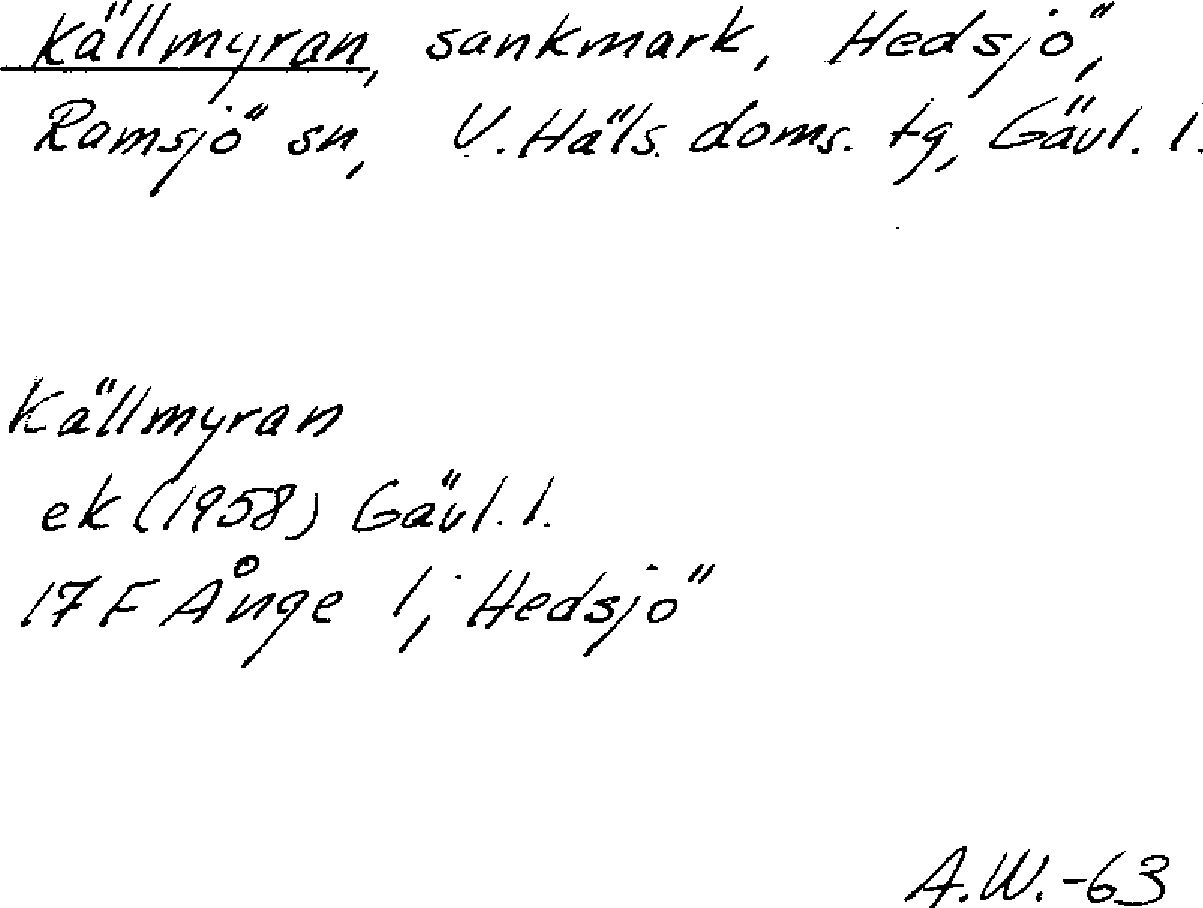 Källmyran, sankmark, Hedsjö,
Ramsjö sn, V. Häls. doms. tg, Gävl. l.
Källmyran
ek (1958) Gävl. l.
17 F Ånge 1; Hedsjö
A.W.-63